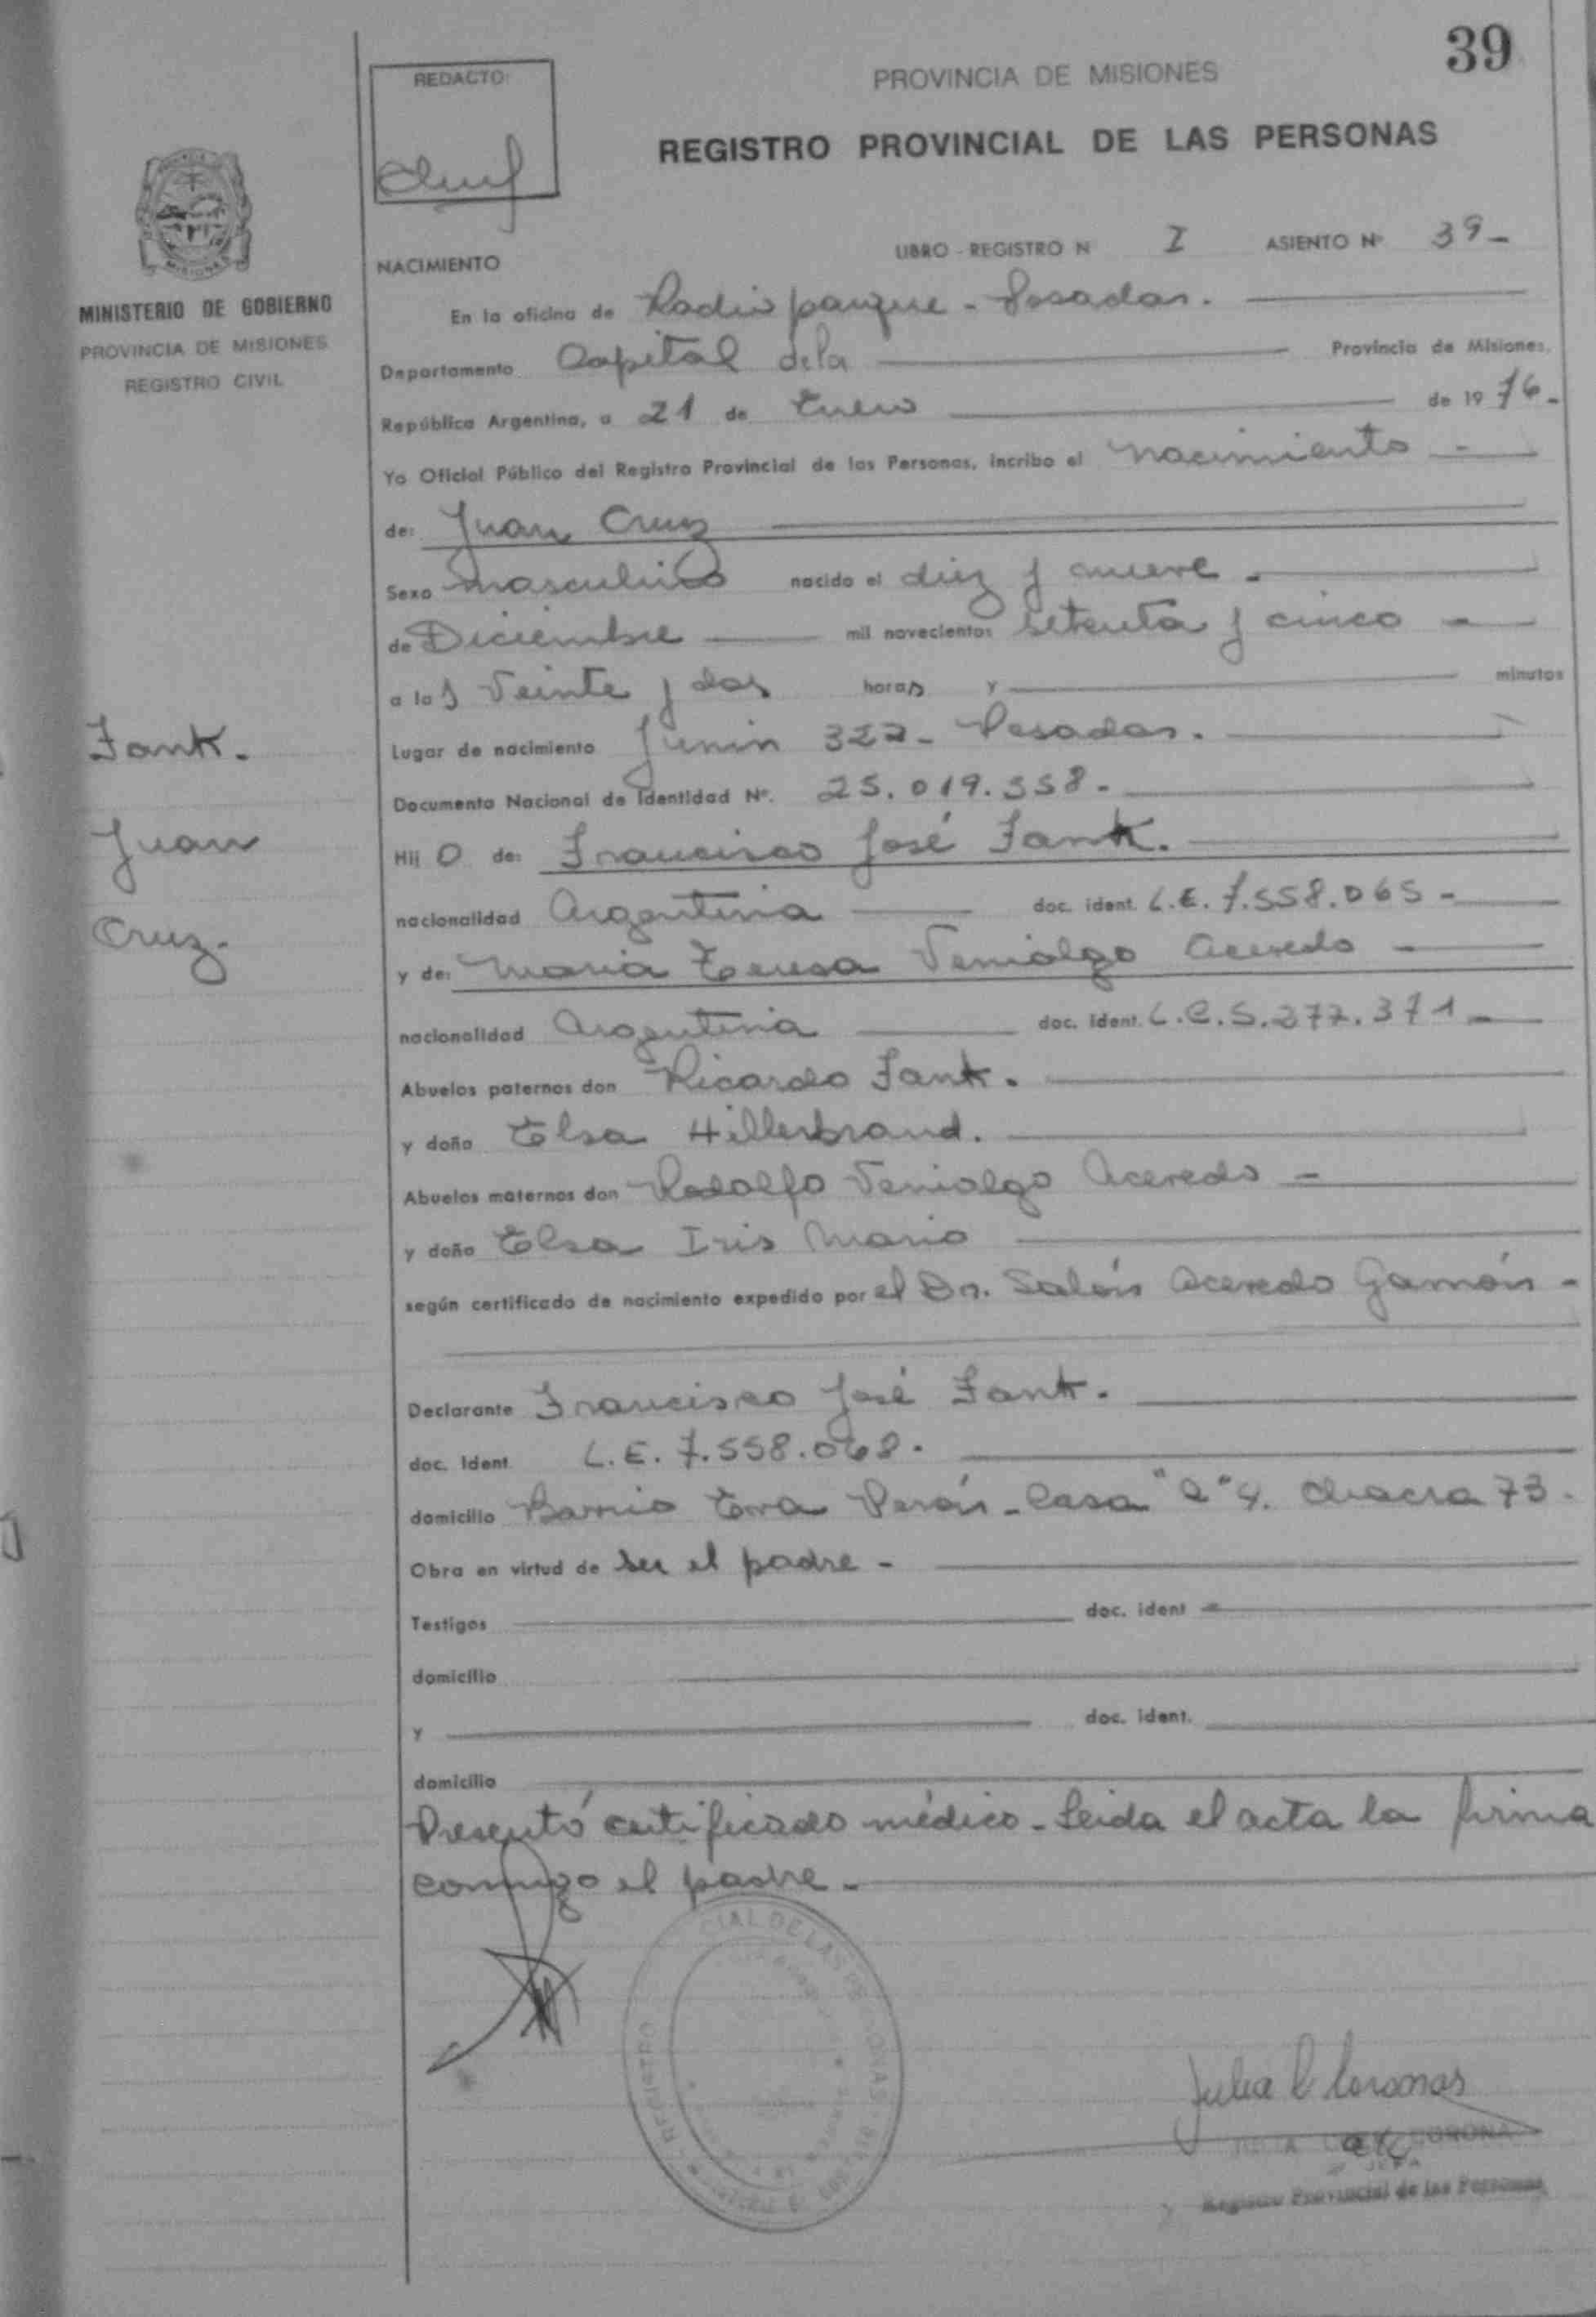 39
REDACTO:
PROVINCIA DE MISIONES
REGISTRO PROVINCIAL DE LAS PERSONAS
MISIONES
MINISTERIO DE GOBIERNO
PROVINCIA DE MISIONES
REGISTRO CIVIL
NACIMIENTO
LIBRO - REGISTRO N I ASIENTO Nº 39 -
En la oficina de Radio parque - Posadas.
Departamento Capital de la Provincia de Misiones,
República Argentina, a 21 de Enero de 1976 -
Yo Oficial Público del Registro Provincial de las Personas, incribo el nacimiento -
de: Juan Cruz
Sexo masculino nacido el diez y nueve -
de Diciembre mil novecientos setenta y cinco -
a las veinte y dos horas y minutos
Fank.
Juan
Cruz.
Lugar de nacimiento Junin 322 - Posadas.
Documento Nacional de Identidad Nº. 25.019.358 -
Hijo de: Francisco José Fank.
nacionalidad Argentina doc. ident. L.E. 7.558.065 -
y de: Maria Teresa Venialgo Acevedo -
nacionalidad Argentina doc. ident. L.C. 5.277.371 -
Abuelos paternos don Ricardo Fank.
y doña Elsa Hillerbrand.
Abuelos maternos don Rodolfo Venialgo Acevedo -
y doña Elsa Iris Mario
según certificado de nacimiento expedido por el Dr. Salón Acevedo Gamón -
Declarante Francisco José Fank.
doc. Ident L.E. 7.558.068.
domicilio Barrio Eva Perón - Casa 4. Chacra 73.
Obra en virtud de ser el padre -
Testigos doc. ident
domicilio
y doc. ident.
domicilio
Presentó certificado médico - Leida el acta la firma
conmigo el padre -
REGISTRO CIAL DE LAS
JEFA
Registro Provincial de las Personas